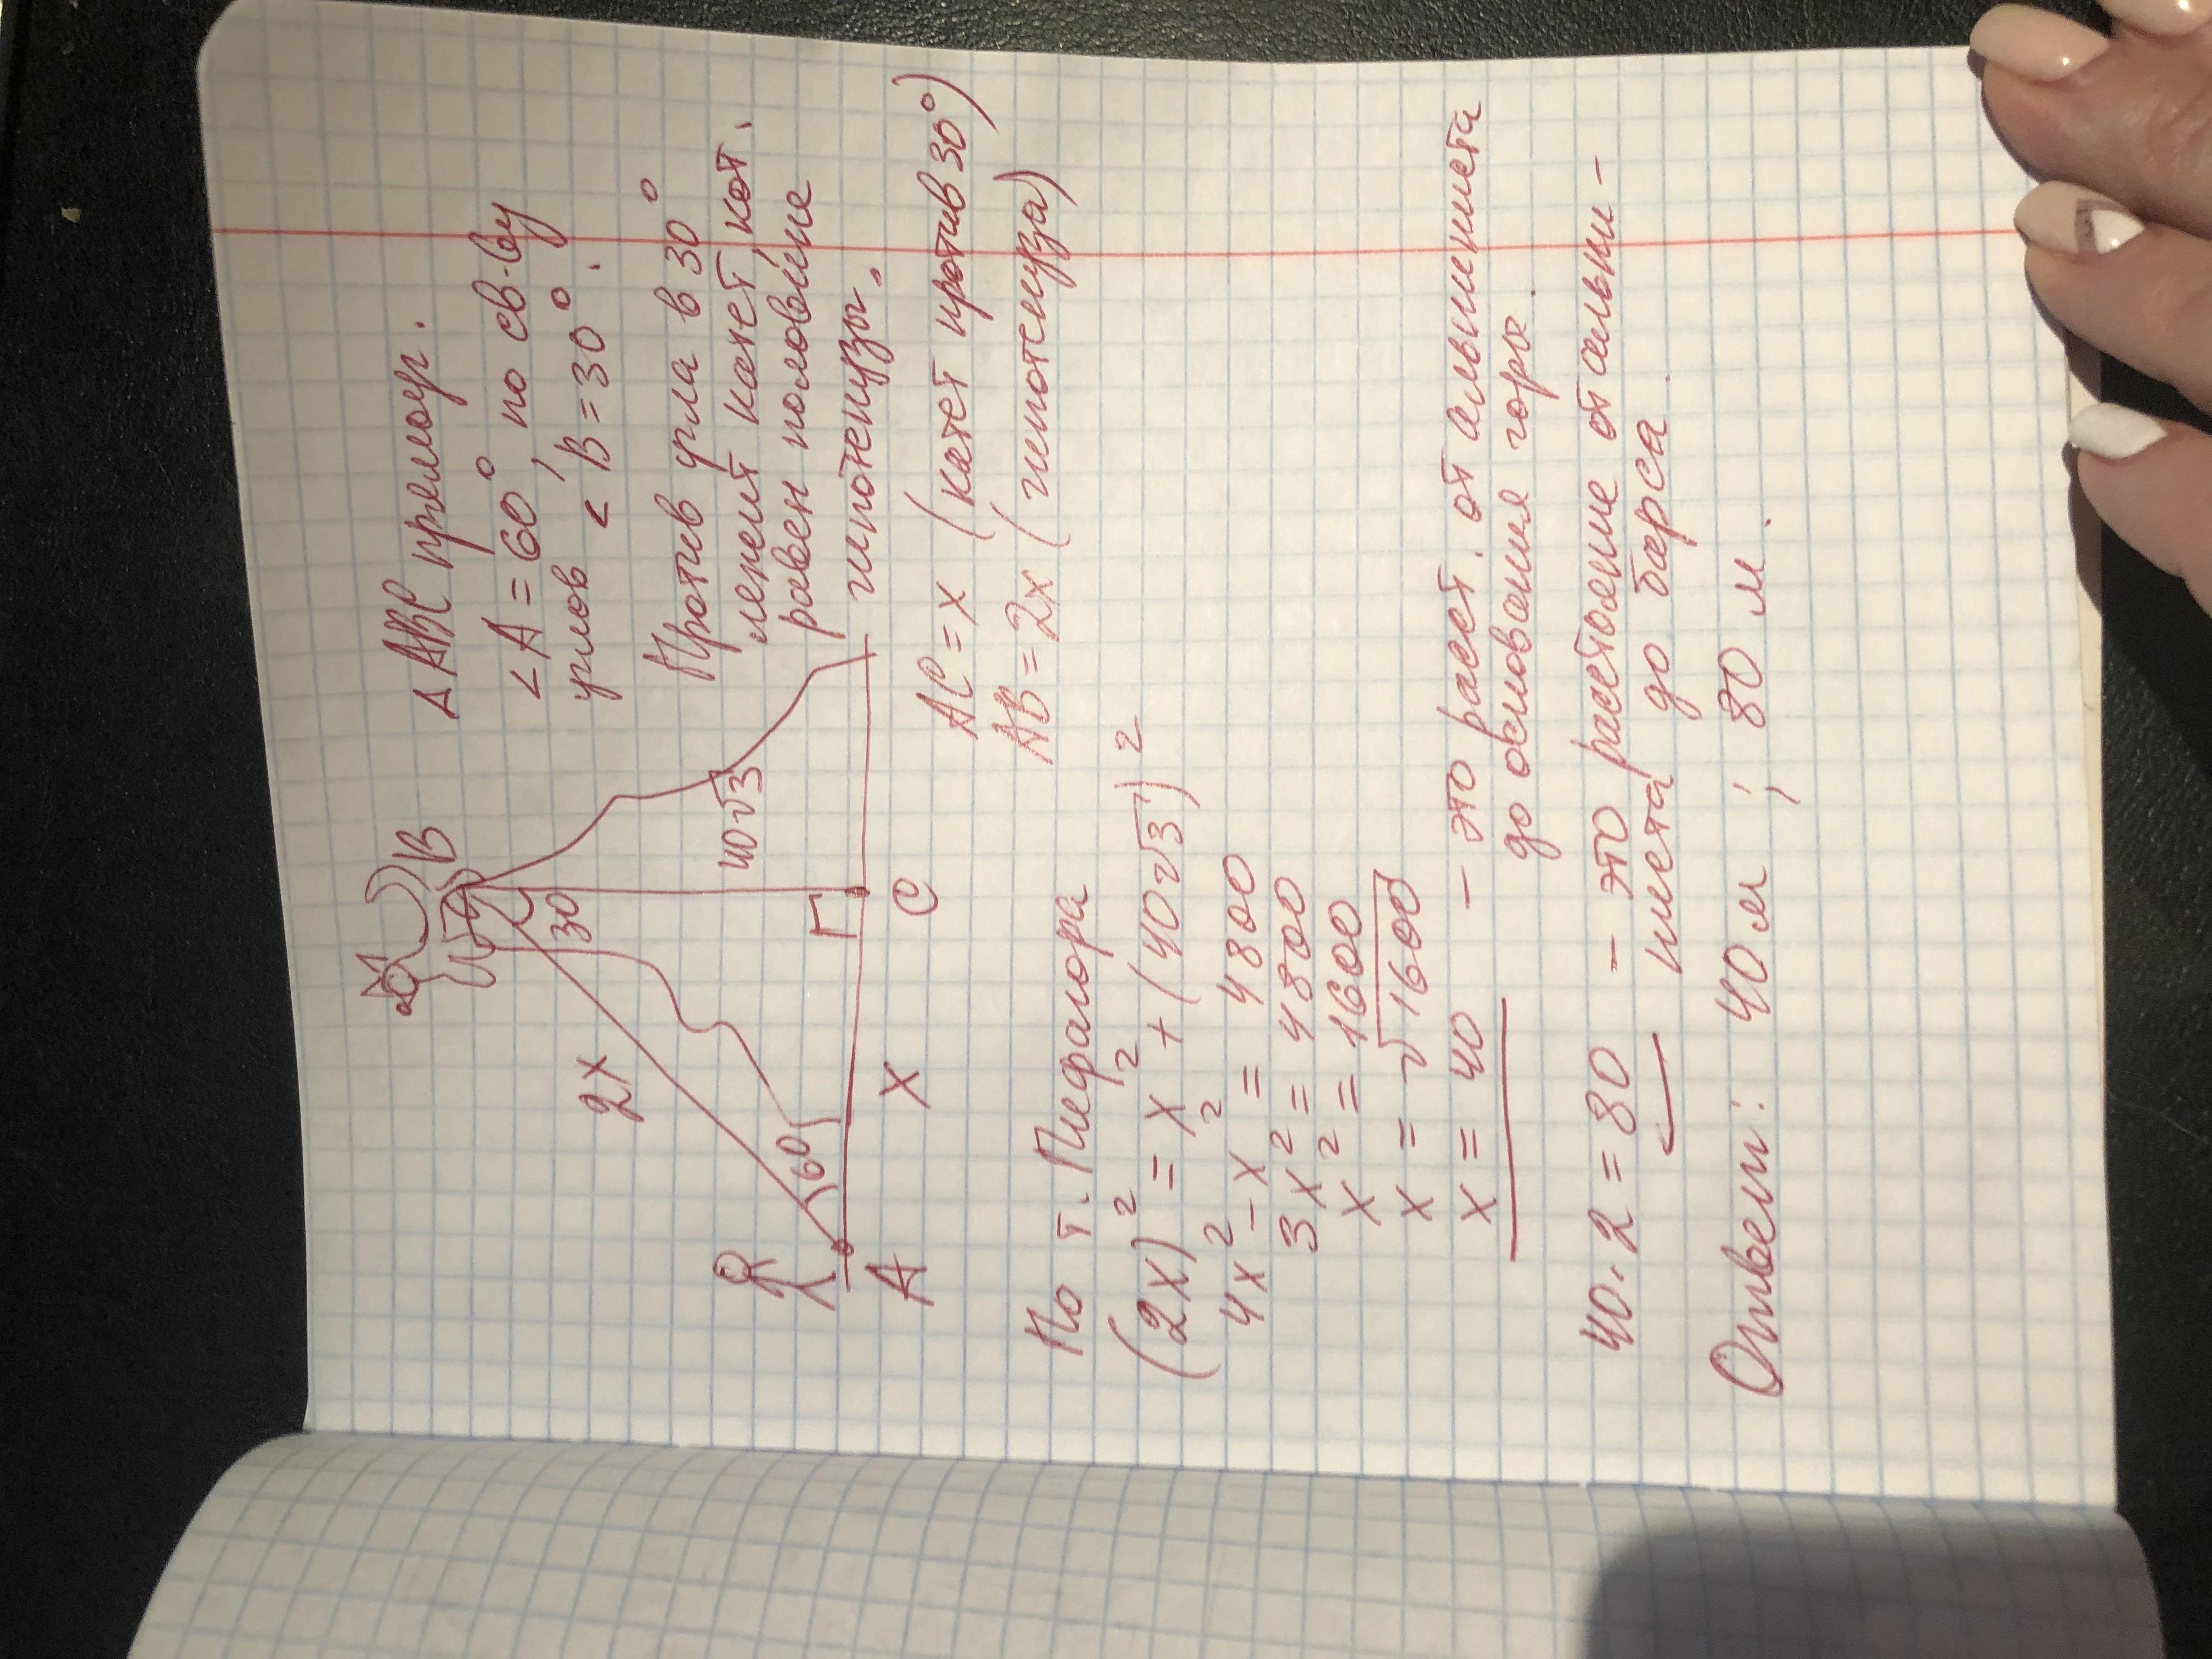 B
2x
30
40√3
60
A
x
C
△ ABC прямоуг.
∠A = 60°, по св-ву
углов ∠B = 30°.
Против угла в 30°
лежит катет, кот.
равен половине
гипотенузы.
AC = x (катет против 30°)
AB = 2x (гипотенуза)
По т. Пифагора
(2x)² = x² + (40√3)²
4x² - x² = 4800
3x² = 4800
x² = 1600
x = √1600
x = 40 - это расст. от альпиниста
до основания горы.
40 · 2 = 80 - это расстояние от альпи-
ниста до барса.
Ответ: 40 м ; 80 м.